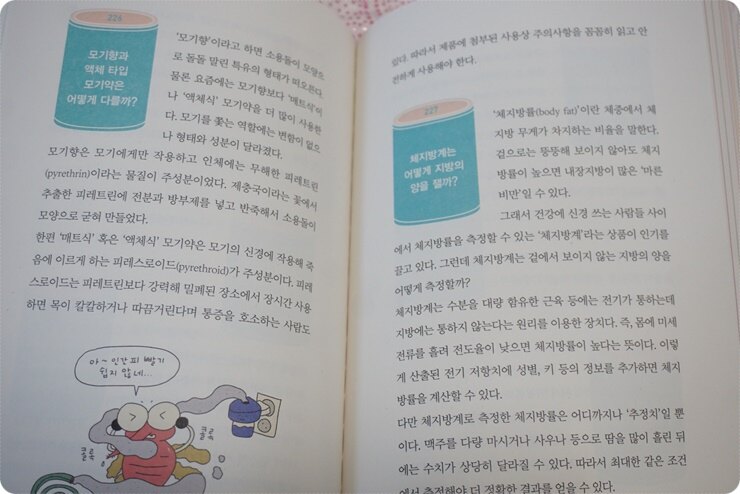 226
모기향과
액체 타입
모기약은
어떻게 다를까?
'모기향'이라고 하면 소용돌이 모양으
로 돌돌 말린 특유의 형태가 떠오른다.
물론 요즘에는 모기향보다 '매트식'이
나 '액체식' 모기약을 더 많이 사용한
다. 모기를 쫓는 역할에는 변함이 없으
나 형태와 성분이 달라졌다.
모기향은 모기에게만 작용하고 인체에는 무해한 피레트린
(pyrethrin)이라는 물질이 주성분이었다. 제충국이라는 꽃에서
추출한 피레트린에 전분과 방부제를 넣고 반죽해서 소용돌이
모양으로 굳혀 만들었다.
한편 '매트식' 혹은 '액체식' 모기약은 모기의 신경에 작용해 죽
음에 이르게 하는 피레스로이드(pyrethroid)가 주성분이다. 피레
스로이드는 피레트린보다 강력해 밀폐된 장소에서 장시간 사용
하면 목이 칼칼하거나 따끔거린다며 통증을 호소하는 사람도
아~ 인간 피 빨기
쉽지 않네...
콜록
콜록
있다. 따라서 제품에 첨부된 사용상 주의사항을 꼼꼼히 읽고 안
전하게 사용해야 한다.
227
체지방계는
어떻게 지방의
양을 잴까?
'체지방률(body fat)'이란 체중에서 체
지방 무게가 차지하는 비율을 말한다.
겉으로는 뚱뚱해 보이지 않아도 체지
방률이 높으면 내장지방이 많은 '마른
비만'일 수 있다.
그래서 건강에 신경 쓰는 사람들 사이
에서 체지방률을 측정할 수 있는 '체지방계'라는 상품이 인기를
끌고 있다. 그런데 체지방계는 겉에서 보이지 않는 지방의 양을
어떻게 측정할까?
체지방계는 수분을 대량 함유한 근육 등에는 전기가 통하는데
지방에는 통하지 않는다는 원리를 이용한 장치다. 즉, 몸에 미세
전류를 흘려 전도율이 낮으면 체지방률이 높다는 뜻이다. 이렇
게 산출된 전기 저항치에 성별, 키 등의 정보를 추가하면 체지
방률을 계산할 수 있다.
다만 체지방계로 측정한 체지방률은 어디까지나 '추정치'일 뿐
이다. 맥주를 다량 마시거나 사우나 등으로 땀을 많이 흘린 뒤
에는 수치가 상당히 달라질 수 있다. 따라서 최대한 같은 조건
에서 측정해야 더 정확한 결과를 얻을 수 있다.